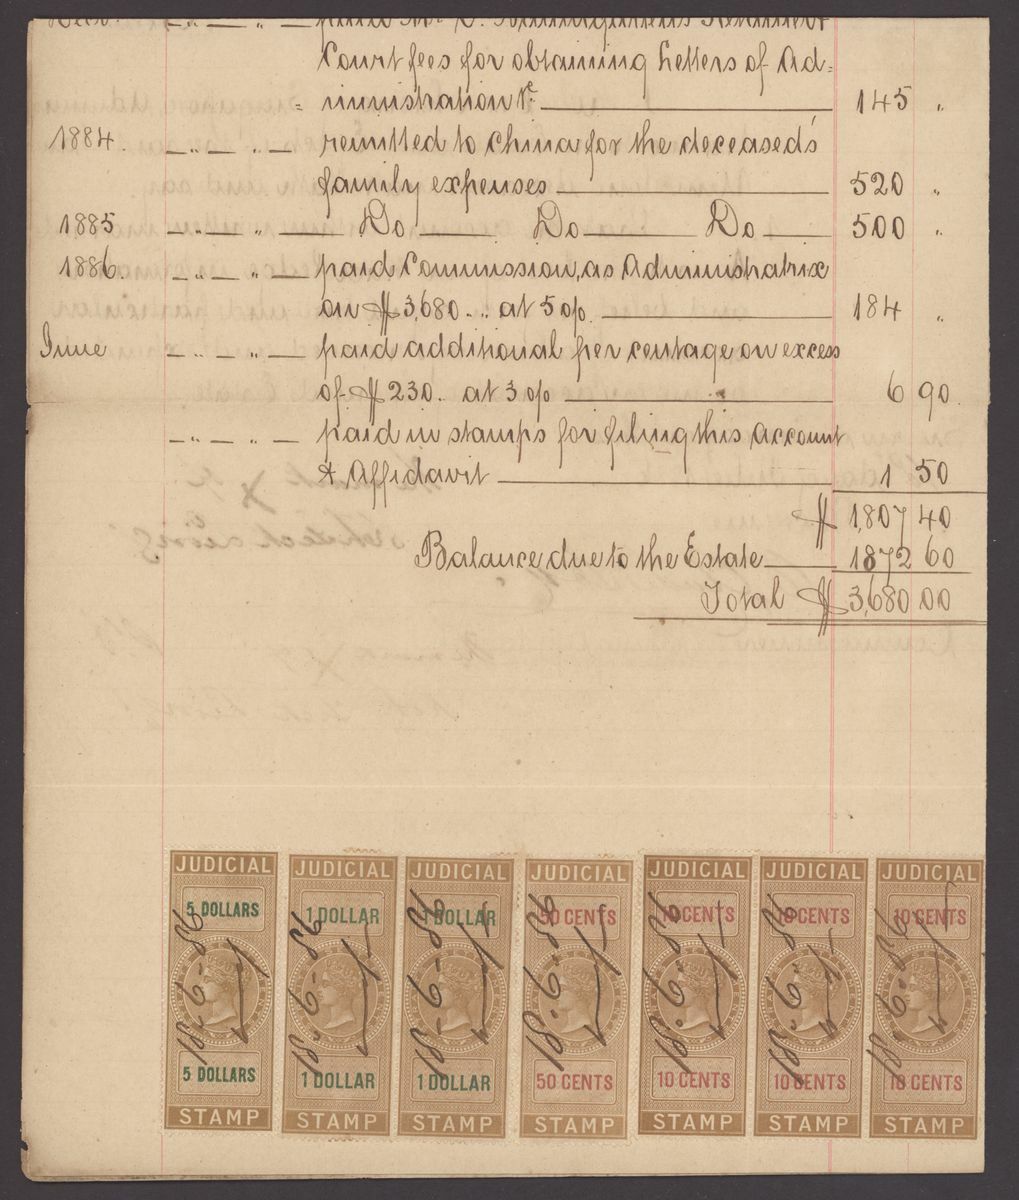 paid Mr
Court fees for obtaining Letters of Ad=
= ministration &c 145 "
1884. — " — " — remitted to China for the deceased's
family expenses 520 "
1885 — " — " — Do Do Do 500 "
1886 — " — " — paid Commission, as Administratrix
on $3,680 .. at 5 o/o 184 "
June — " — " — paid additional per centage on excess
of $230 .. at 3 o/o 6 90
— " — " — paid in stamps for filing this Account
& Affidavit 1 50
$ 1,807 40
Balance due to the Estate 1872 60
Total $ 3,680 00
JUDICIAL JUDICIAL JUDICIAL JUDICIAL JUDICIAL JUDICIAL JUDICIAL
5 DOLLARS 1 DOLLAR 1 DOLLAR 50 CENTS 10 CENTS 10 CENTS 10 CENTS
5 DOLLARS 1 DOLLAR 1 DOLLAR 50 CENTS 10 CENTS 10 CENTS 10 CENTS
STAMP STAMP STAMP STAMP STAMP STAMP STAMP